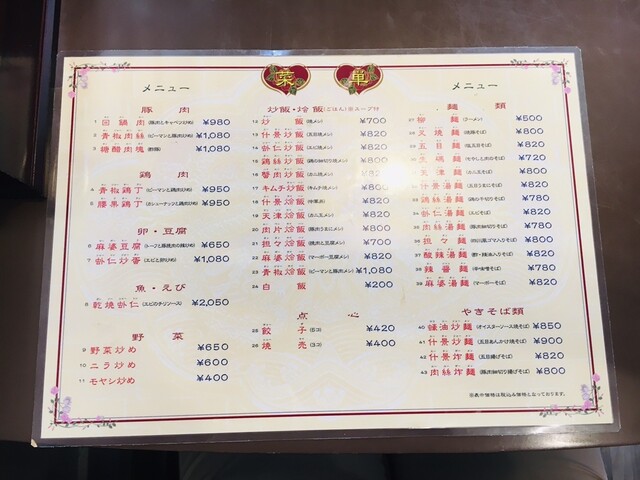 菜 単
メニュー
豚肉
1 回鍋肉 (豚肉とキャベツ炒め) ¥980
2 青椒肉絲 (ピーマンと豚肉炒め) ¥1,080
3 糖醋肉塊 (酢豚) ¥1,080
鶏肉
4 青椒鶏丁 (ピーマンと鶏肉炒め) ¥950
5 腰果鶏丁 (カシューナッツと鶏肉炒め) ¥950
卵・豆腐
6 麻婆豆腐 ¥650
7 蝦仁炒蛋 (エビと卵炒め) ¥1,080
魚・えび
8 乾焼蝦仁 (エビのチリソース) ¥2,050
野菜
9 野菜炒め ¥650
10 ニラ炒め ¥600
11 モヤシ炒め ¥400
炒飯・烩飯 (ごはん)※スープ付
12 炒飯 (焼メシ) ¥700
13 什景炒飯 (五目焼メシ) ¥820
14 蝦仁炒飯 (エビ焼メシ) ¥820
15 鶏絲炒飯 (鶏の細切り焼メシ) ¥800
16 蟹肉炒飯 (カニ焼メシ) ¥820
17 キムチ炒飯 (キムチ焼メシ) ¥800
18 什景烩飯 (中華丼) ¥820
19 天津烩飯 (カニ玉メシ) ¥820
20 肉片烩飯 ¥820
21 担々烩飯 ¥700
22 麻婆烩飯 (マーボー豆腐メシ) ¥820
23 青椒烩飯 (ピーマンと豚肉メシ) ¥1,080
24 白飯 ¥200
点心
25 餃子 ¥420
26 焼売 ¥400
メニュー
麺類
27 柳麺 (ラーメン) ¥500
28 叉焼麺 (焼豚そば) ¥800
29 五目麺 (塩五目そば) ¥820
30 生碼麺 (もやしと肉のそば) ¥720
31 天津麺 (カニ玉そば) ¥820
32 什景湯麺 (五目うまにそば) ¥820
33 鶏絲湯麺 (鶏の千切りそば) ¥780
34 蝦仁湯麺 (エビそば) ¥820
35 肉絲湯麺 (豚肉細切りそば) ¥780
36 担々麺 ¥800
37 酸辣湯麺 ¥820
38 辣醤麺 ¥780
39 麻婆湯麺 (マーボーそば) ¥820
やきそば類
40 蠔油炒麺 (オイスターソース焼そば) ¥850
41 什景炒麺 (五目あんかけ焼そば) ¥900
42 什景炸麺 (五目揚げそば) ¥820
43 肉絲炸麺 (豚肉細切り揚げそば) ¥820
※表中価格は税込み価格となっております。